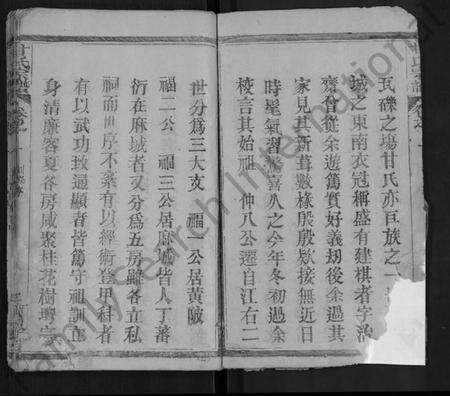 瓦礫之場甘氏亦巨族之一
城之東南衣冠稱盛有建棋者字治
齋曾從余遊篤實好義刼後余過其
家見其新葺數椽殷殷欵接無近日
時髦氣習驚喜久之今年冬初過余
校言其始祖 仲八公遷自江右二
世分爲三大支 福一公居黃陂
福二公 福三公居麻城皆人丁蕃
衍在麻城者又分爲五房雖各立私
祠而世序不紊有以經術登甲科者
有以武功致通顯者皆篤守祖訓立
身清廉客夏各房咸聚桂花樹灣
甘氏宗譜
FamilySearch International